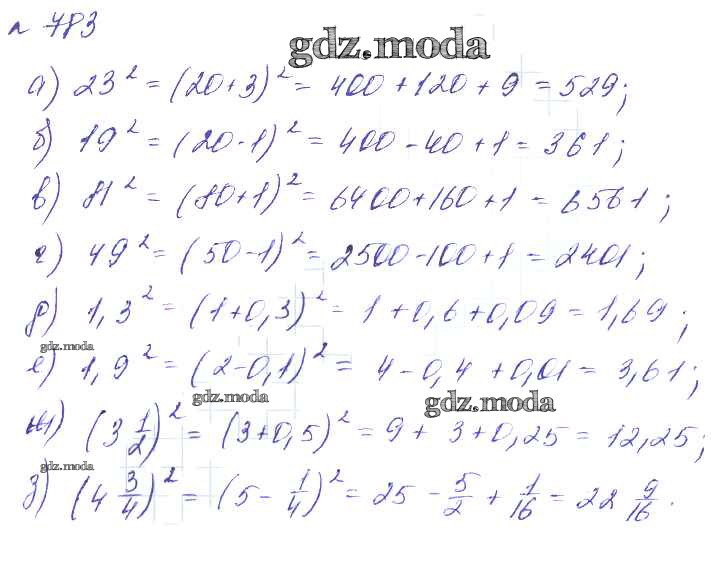 № 783
gdz.moda
а) 23² = (20+3)² = 400 + 120 + 9 = 529;
б) 19² = (20-1)² = 400 - 40 + 1 = 361;
в) 81² = (80+1)² = 6400+160+1 = 6561;
г) 49² = (50-1)² = 2500-100+1 = 2401;
д) 1,3² = (1+0,3)² = 1 + 0,6 + 0,09 = 1,69;
gdz.moda
е) 1,9² = (2-0,1)² = 4 - 0,4 + 0,01 = 3,61;
gdz.moda
gdz.moda
ж) (3 1/2)² = (3+0,5)² = 9 + 3 + 0,25 = 12,25;
gdz.moda
з) (4 3/4)² = (5 - 1/4)² = 25 - 5/2 + 1/16 = 22 9/16.